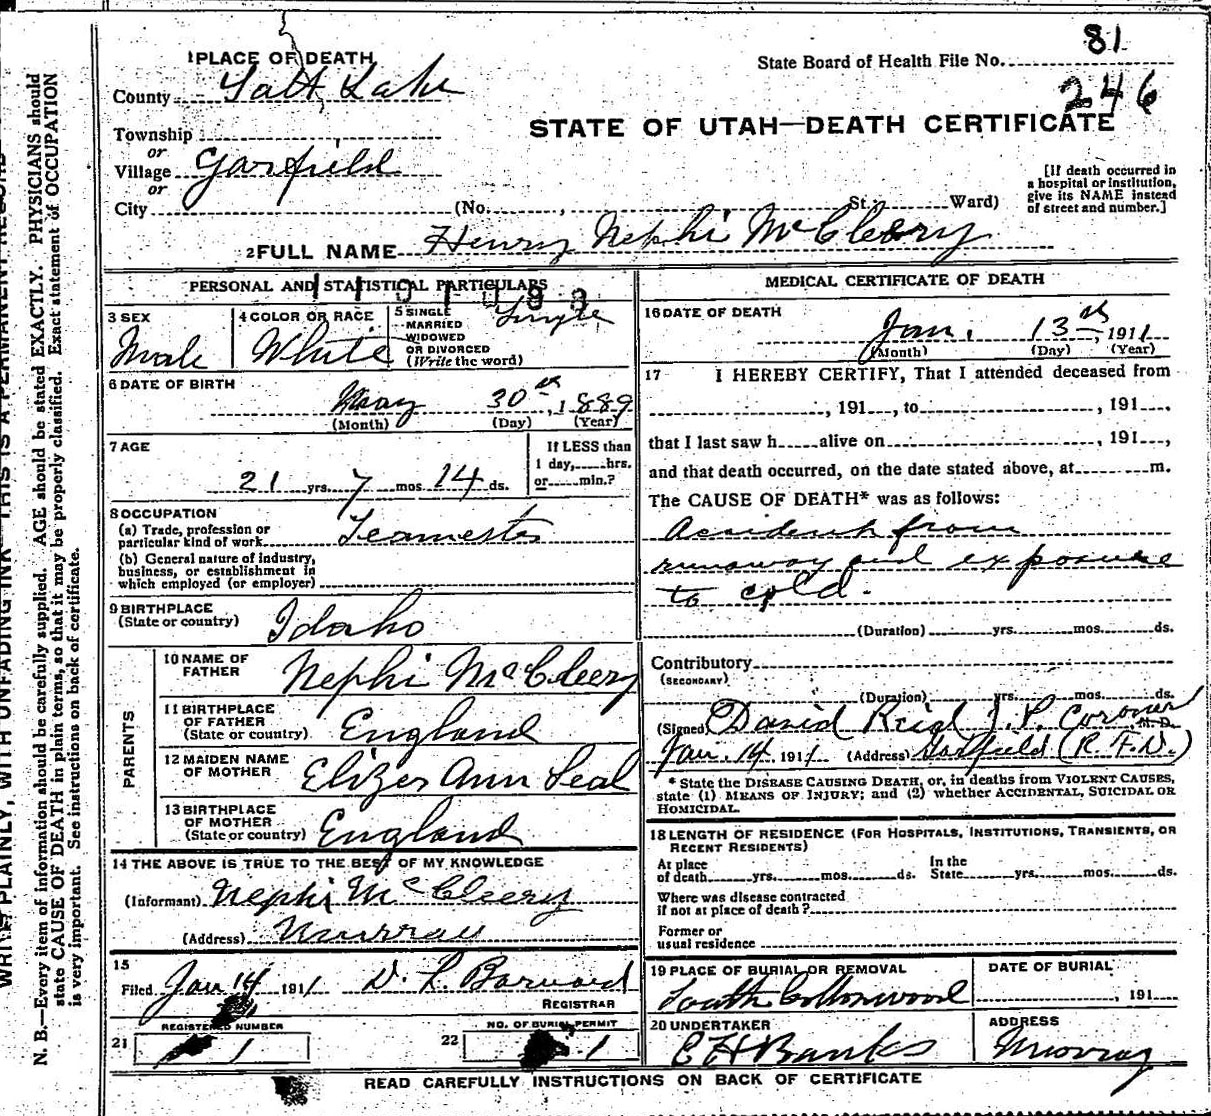 81
State Board of Health File No.
246
1 PLACE OF DEATH
County Salt Lake
STATE OF UTAH—DEATH CERTIFICATE
Township
or
Village Garfield
or
City (No. , St. Ward)
[If death occurred in
a hospital or institution,
give its NAME instead
of street and number.]
2 FULL NAME Henry Nephi McCleery
PERSONAL AND STATISTICAL PARTICULARS
3 SEX
Male
4 COLOR OR RACE
White
5 SINGLE
MARRIED
WIDOWED
OR DIVORCED
(Write the word)
Single
6 DATE OF BIRTH
May 30th, 1889
(Month) (Day) (Year)
7 AGE
21 yrs. 7 mos. 14 ds.
If LESS than
1 day, hrs.
or min.?
8 OCCUPATION
(a) Trade, profession or
particular kind of work Teamster
(b) General nature of industry,
business, or establishment in
which employed (or employer)
9 BIRTHPLACE
(State or country) Idaho
PARENTS
10 NAME OF
FATHER Nephi McCleery
11 BIRTHPLACE
OF FATHER
(State or country) England
12 MAIDEN NAME
OF MOTHER Elizer Ann Seal
13 BIRTHPLACE
OF MOTHER
(State or country) England
14 THE ABOVE IS TRUE TO THE BEST OF MY KNOWLEDGE
(Informant) Nephi McCleery
(Address) Murray
15
Filed Jan 14 1911
REGISTRAR
REGISTERED NUMBER
21 1
NO. OF BURIAL PERMIT
22 1
MEDICAL CERTIFICATE OF DEATH
16 DATE OF DEATH
Jan. 13th, 1911
(Month) (Day) (Year)
17 I HEREBY CERTIFY, That I attended deceased from
, 191 , to , 191 .
that I last saw h alive on , 191 ,
and that death occurred, on the date stated above, at m.
The CAUSE OF DEATH* was as follows:
Accident from
runaway and exposure
to cold.
(Duration) yrs. mos. ds.
Contributory
(SECONDARY)
(Duration) yrs. mos. ds.
(Signed) David Reid J.P. Coroner M.D.
Jan. 14, 1911 (Address) Garfield (R.F.D.)
* State the DISEASE CAUSING DEATH, or, in deaths from VIOLENT CAUSES,
state (1) MEANS OF INJURY; and (2) whether ACCIDENTAL, SUICIDAL OR
HOMICIDAL.
18 LENGTH OF RESIDENCE (FOR HOSPITALS, INSTITUTIONS, TRANSIENTS, OR
RECENT RESIDENTS)
At place
of death yrs. mos. ds.
In the
State yrs. mos. ds.
Where was disease contracted
if not at place of death?
Former or
usual residence
19 PLACE OF BURIAL OR REMOVAL
South Cottonwood
DATE OF BURIAL
, 191
20 UNDERTAKER
E H Banks
ADDRESS
Murray
READ CAREFULLY INSTRUCTIONS ON BACK OF CERTIFICATE
N. B.—Every item of information should be carefully supplied. AGE should be stated EXACTLY. PHYSICIANS should
state CAUSE OF DEATH in plain terms, so that it may be properly classified. Exact statement of OCCUPATION
is very important. See instructions on back of certificate.
PLAINLY, WITH UNFADING INK—THIS IS A PERMANENT RECORD